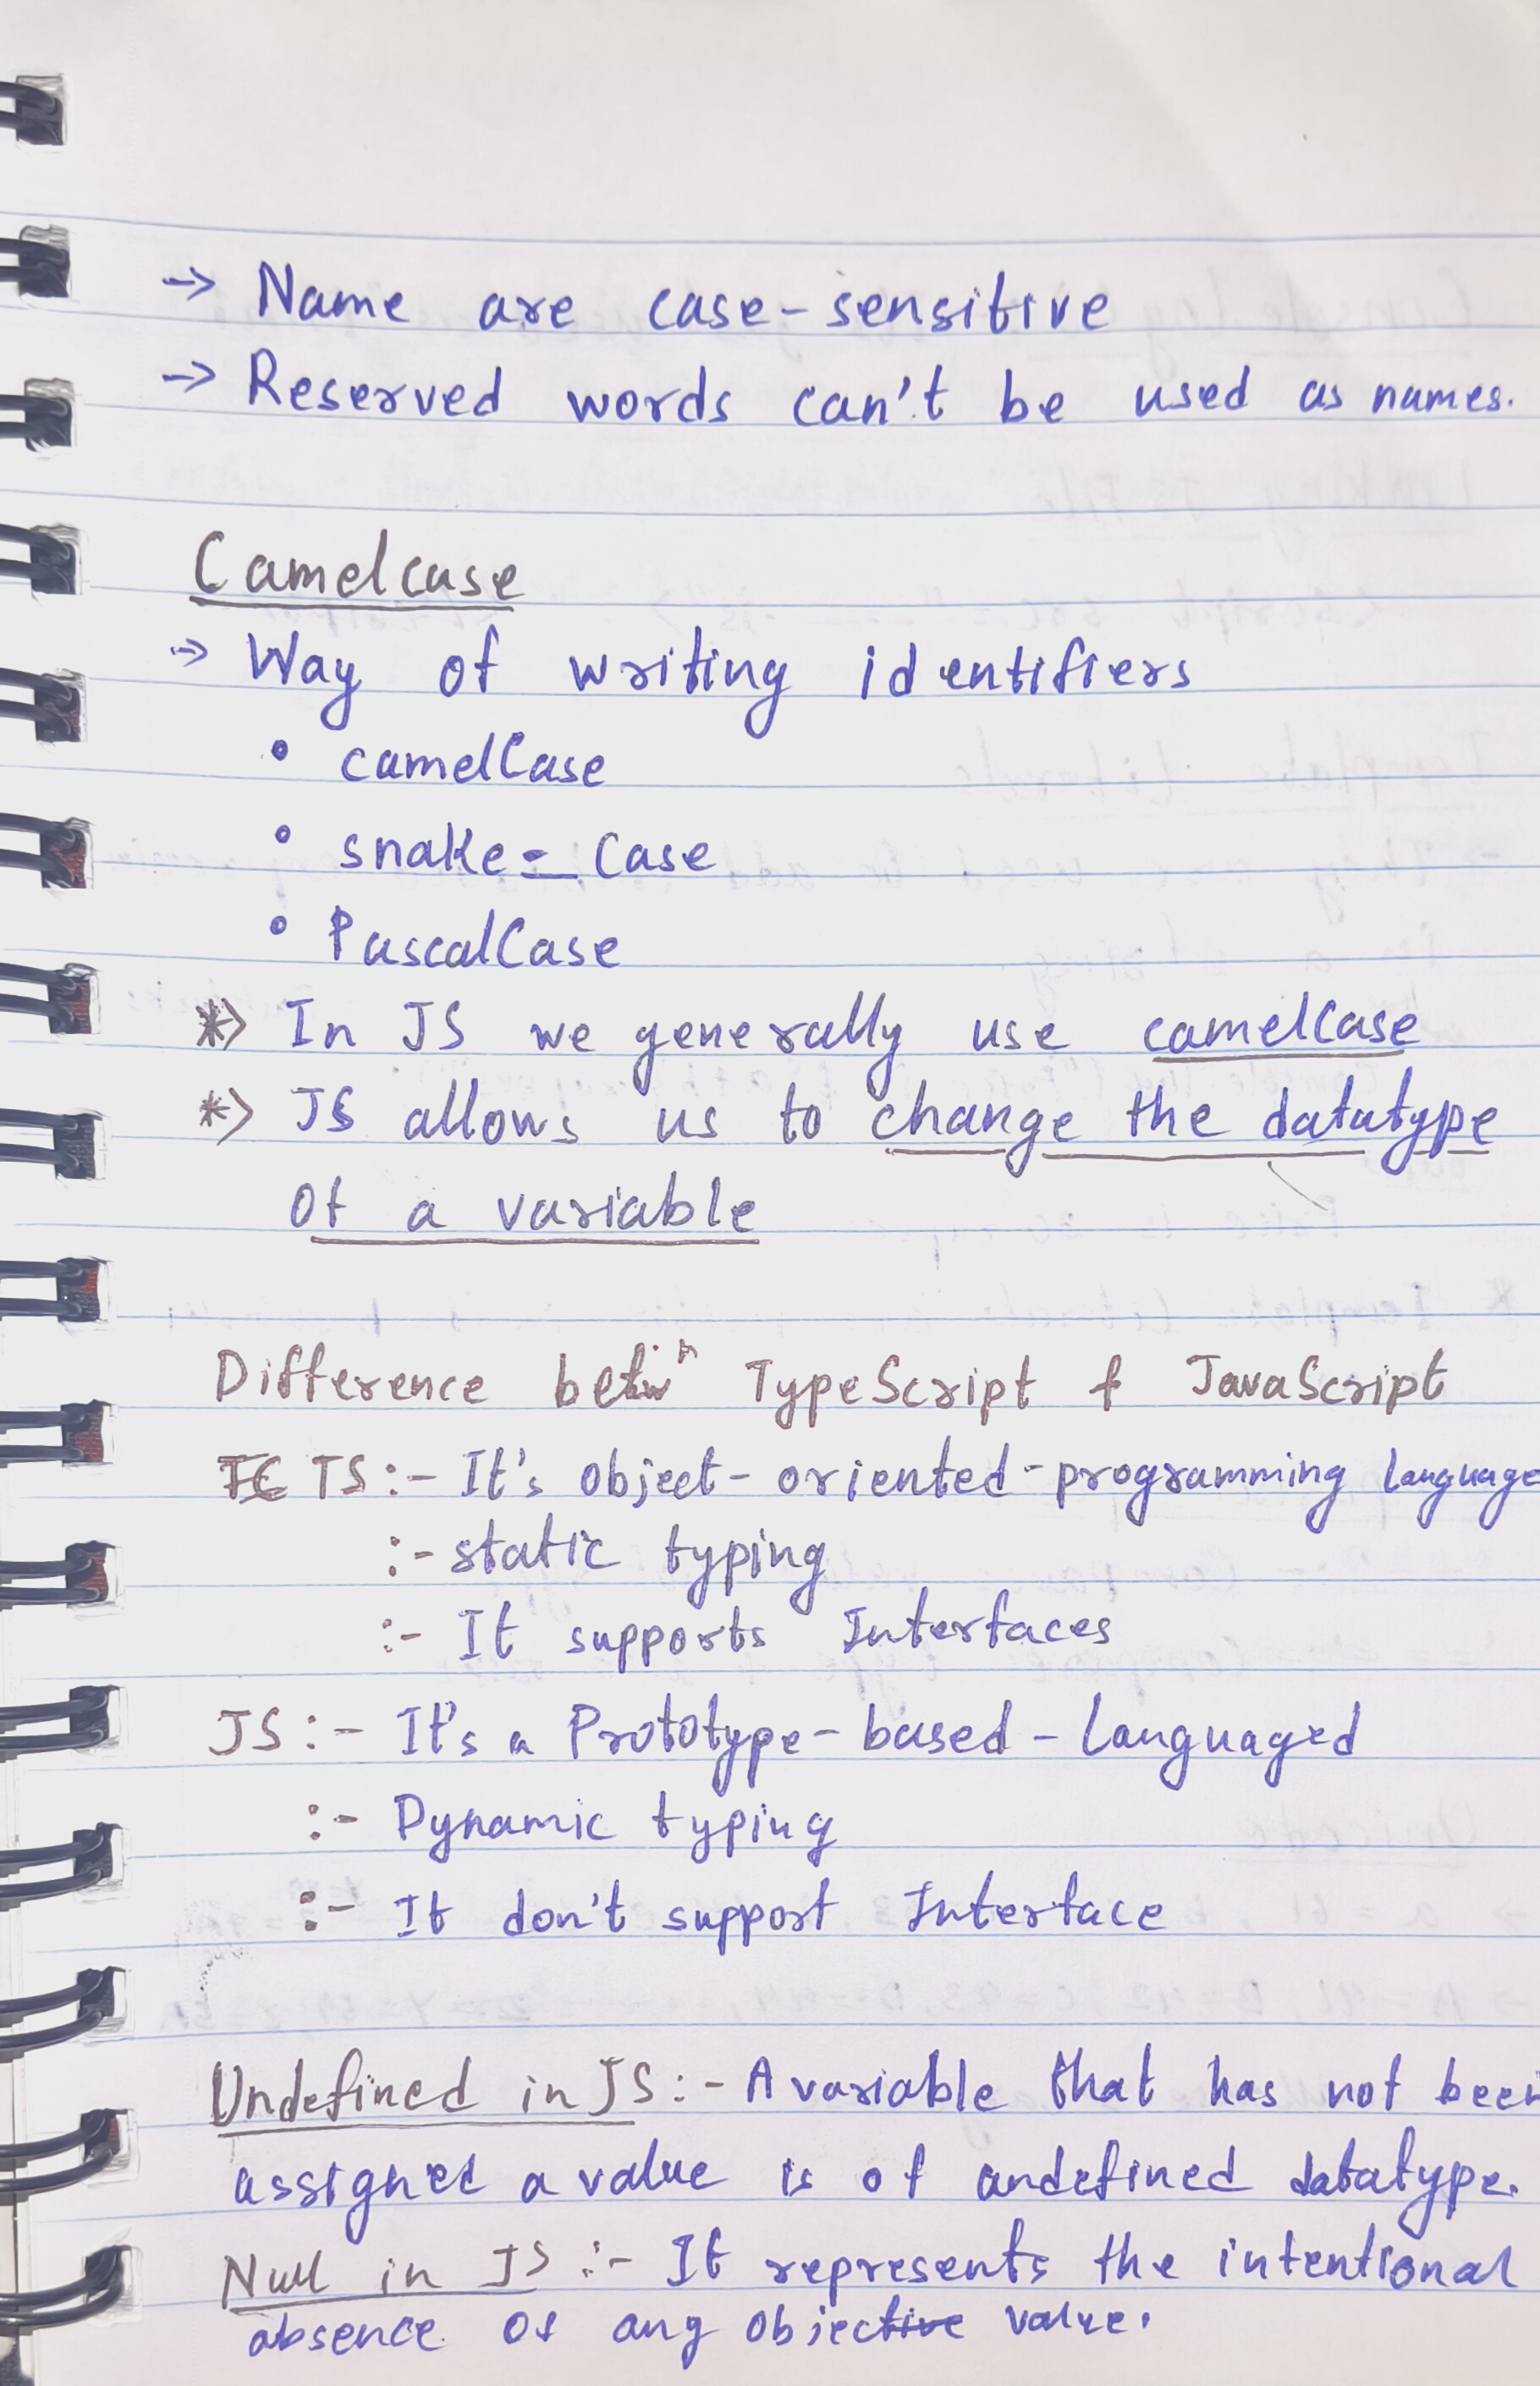 -> Name are case-sensitive
-> Reserved words can't be used as names.
Camelcase
-> Way of writing identifiers
• camelCase
• snake_case
• PascalCase
*> In JS we generally use camelCase
*> JS allows us to change the datatype
of a variable
Difference betwⁿ TypeScript & JavaScript
TS:- It's object-oriented-programming language
:- static typing
:- It supports Interfaces
JS:- It's a Prototype-based-Languaged
:- Dynamic typing
:- It don't support Interface
Undefined in JS:- A variable that has not been
assigned a value is of undefined datatype.
Null in JS:- It represents the intentional
absence of any object value.